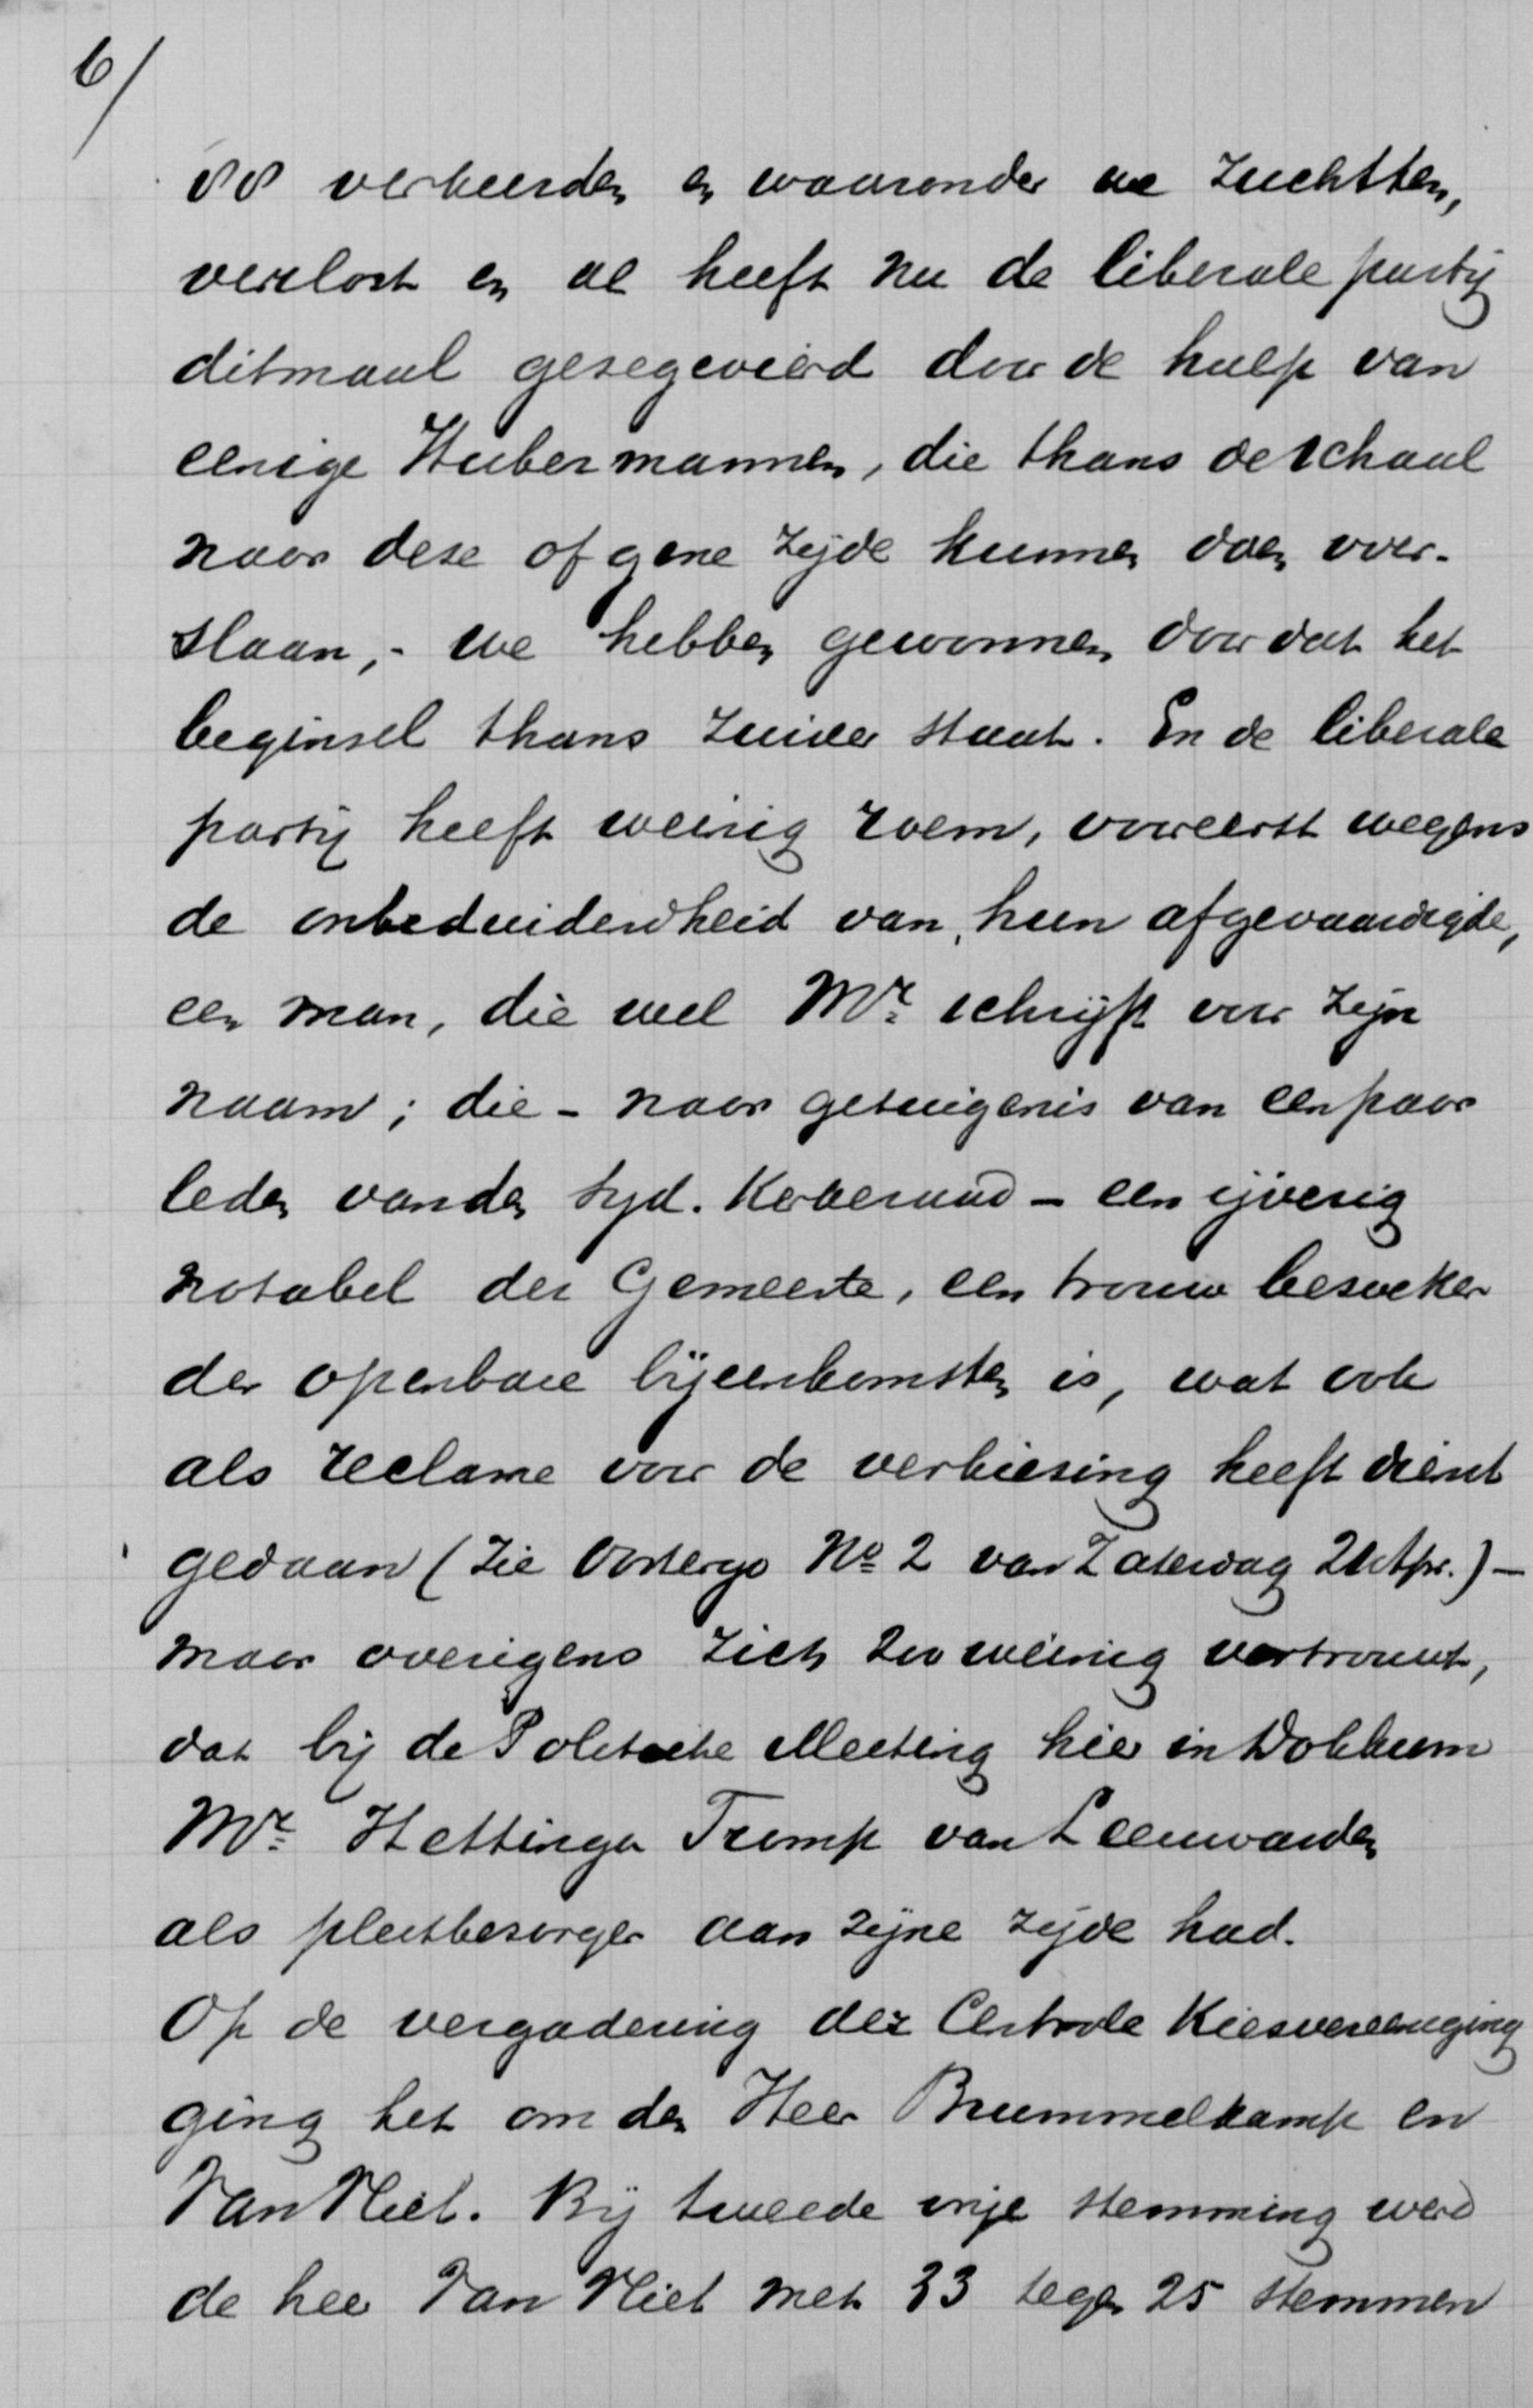 6/
verkeerden en waaronder we zuchtten,
verlost en al heeft nu de liberale partij
ditmaal gezegevierd door de hulp van
eenige Hubermannen, die thans de schaal
naar deze of gene zijde kunnen doen over-
slaan, - we hebben gewonnen doordat het
beginsel thans zuiver staat. En de liberale
partij heeft weinig roem, vooreerst wegens
de onbeduidendheid van hun afgevaardigde,
een man, die wel Mr. schrijft voor zijn
naam; die - naar getuigenis van een paar
leden van den tijd. Kerkeraad - een ijverig
notabel der Gemeente, een trouw bezoeker
der openbare bijeenkomsten is, wat ook
als reclame voor de verkiezing heeft dienst
gedaan (Zie Oostergo No 2 van Zaterdag 21 Apr.) -
maar overigens zich zoo weinig vertrouwt,
dat bij de Politieke Meeting hier in Dokkum
Mr. Hettinga Tromp van Leeuwarden
als pleitbezorger aan zijne zijde had.
Op de vergadering der Centrale Kiesvereeniging
ging het om den Heer Brummelkamp en
Van Vliet. Bij tweede vrije stemming werd
de heer Van Vliet met 33 tegen 25 stemmen